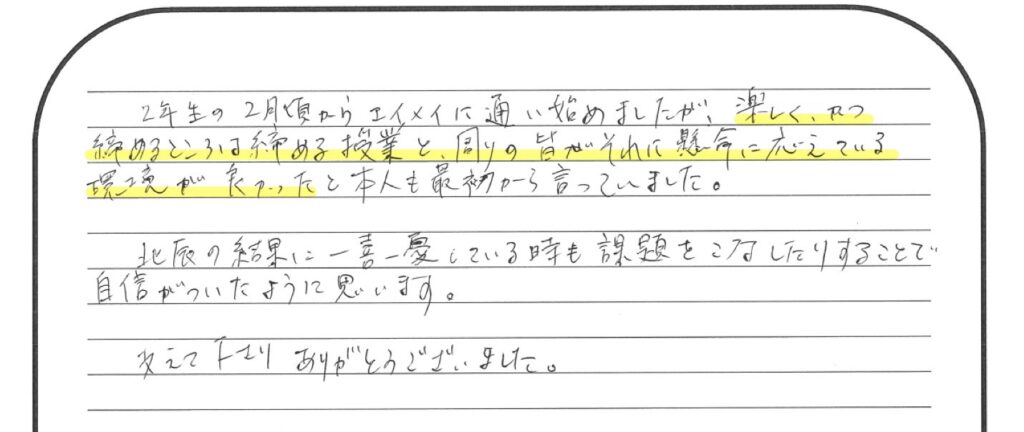 2年生の2月頃からエイメイに通い始めましたが、楽しく、かつ
締めるところは締める授業と、周りの皆がそれに懸命に応えている
環境が良かったと本人も最初から言っていました。
北辰の結果に一喜一憂している時も課題をこなしたりすることで
自信がついたように思います。
支えて下さりありがとうございました。